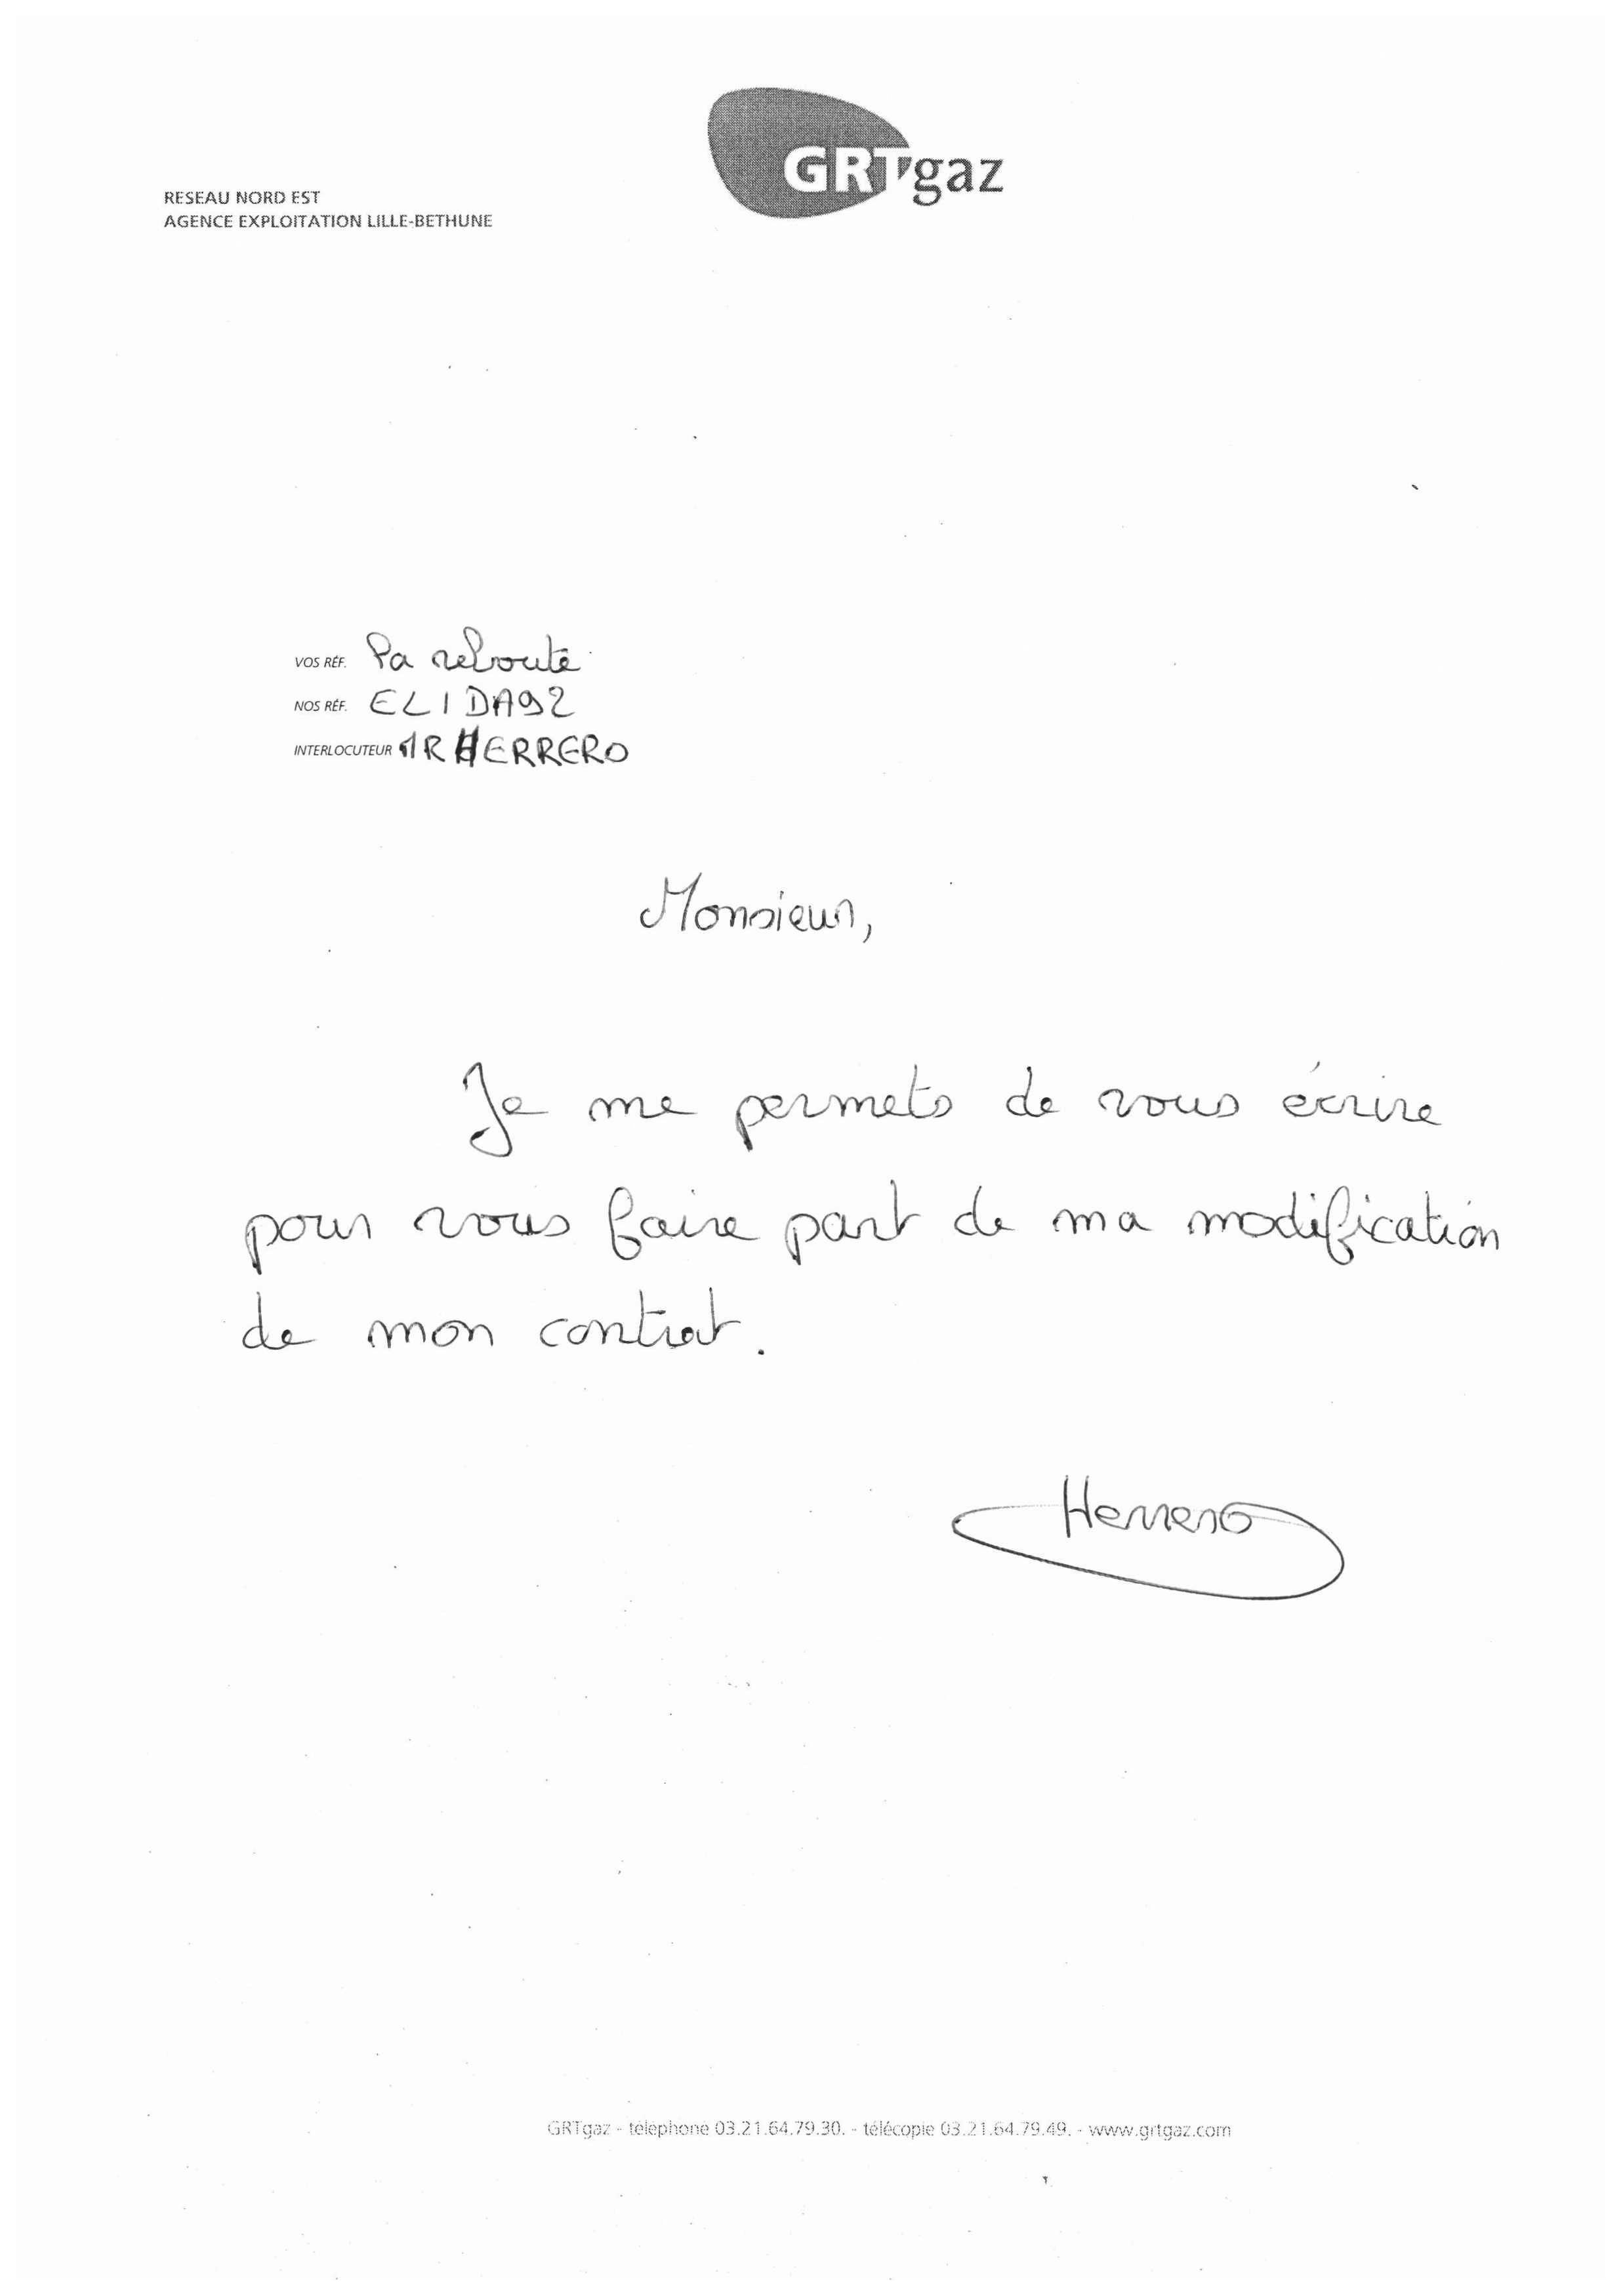 GRTgaz
RESEAU NORD EST
AGENCE EXPLOITATION LILLE-BETHUNE
VOS RÉF. Pa reboute
NOS RÉF. ELIDA92
INTERLOCUTEUR MR HERRERO
Monsieur,
Je me permets de vous écrire
pour vous faire part de ma modification
de mon contrat.
Herrero
GRTgaz - téléphone 03.21.64.79.30. - télécopie 03.21.64.79.49. - www.grtgaz.com